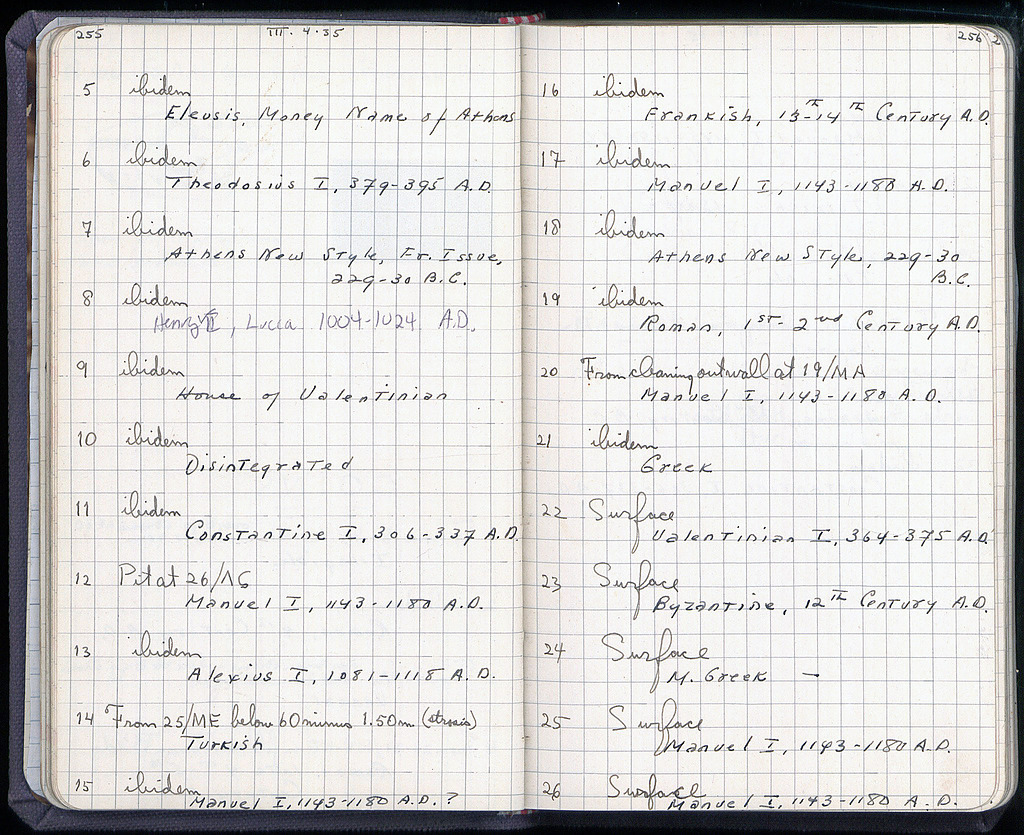 255 III. 4.35
5 ibidem
Eleusis, Money Name of Athens
6 ibidem
Theodosius I, 379-395 A.D.
7 ibidem
Athens New Style, Fr. Issue,
229-30 B.C.
8 ibidem
Henry II, Lucca 1004-1024 A.D.
9 ibidem
House of Valentinian
10 ibidem
Disintegrated
11 ibidem
Constantine I, 306-337 A.D.
12 Pit at 26/ΛS
Manuel I, 1143-1180 A.D.
13 ibidem
Alexius I, 1081-1118 A.D.
14 From 25/ME below 60 minus 1.50m (strosis)
Turkish
15 ibidem
Manuel I, 1143-1180 A.D.?
256
16 ibidem
Frankish, 13-14th Century A.D.
17 ibidem
Manuel I, 1143-1180 A.D.
18 ibidem
Athens New Style, 229-30
B.C.
19 ibidem
Roman, 1st-2nd Century A.D.
20 From cleaning out wall at 19/MA
Manuel I, 1143-1180 A.D.
21 ibidem
Greek
22 Surface
Valentinian I, 364-375 A.D.
23 Surface
Byzantine, 12th Century A.D.
24 Surface
M. Greek —
25 Surface
Manuel I, 1143-1180 A.D.
26 Surface
Manuel I, 1143-1180 A.D.